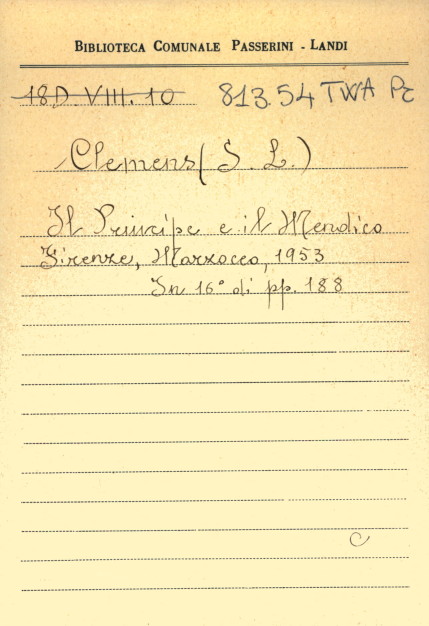 BIBLIOTECA COMUNALE PASSERINI - LANDI
18D.VIII.10 813.54 TWA Pc
Clemens (S. L.)
Il Principe e il Mendico
Firenze, Marzocco, 1953
In 16° di pp. 188
C